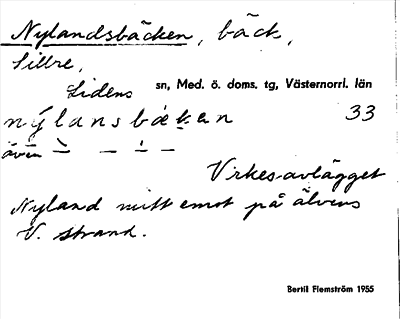 Nylandsbäcken, bäck,
Sillre,
Lidens sn, Med. ö. doms. tg, Västernorrl. län
nýlansbækan 33
även ˋ — ÷ —
Virkesavlägget
Nyland mitt emot på älvens
V. strand.
Bertil Flemström 1955